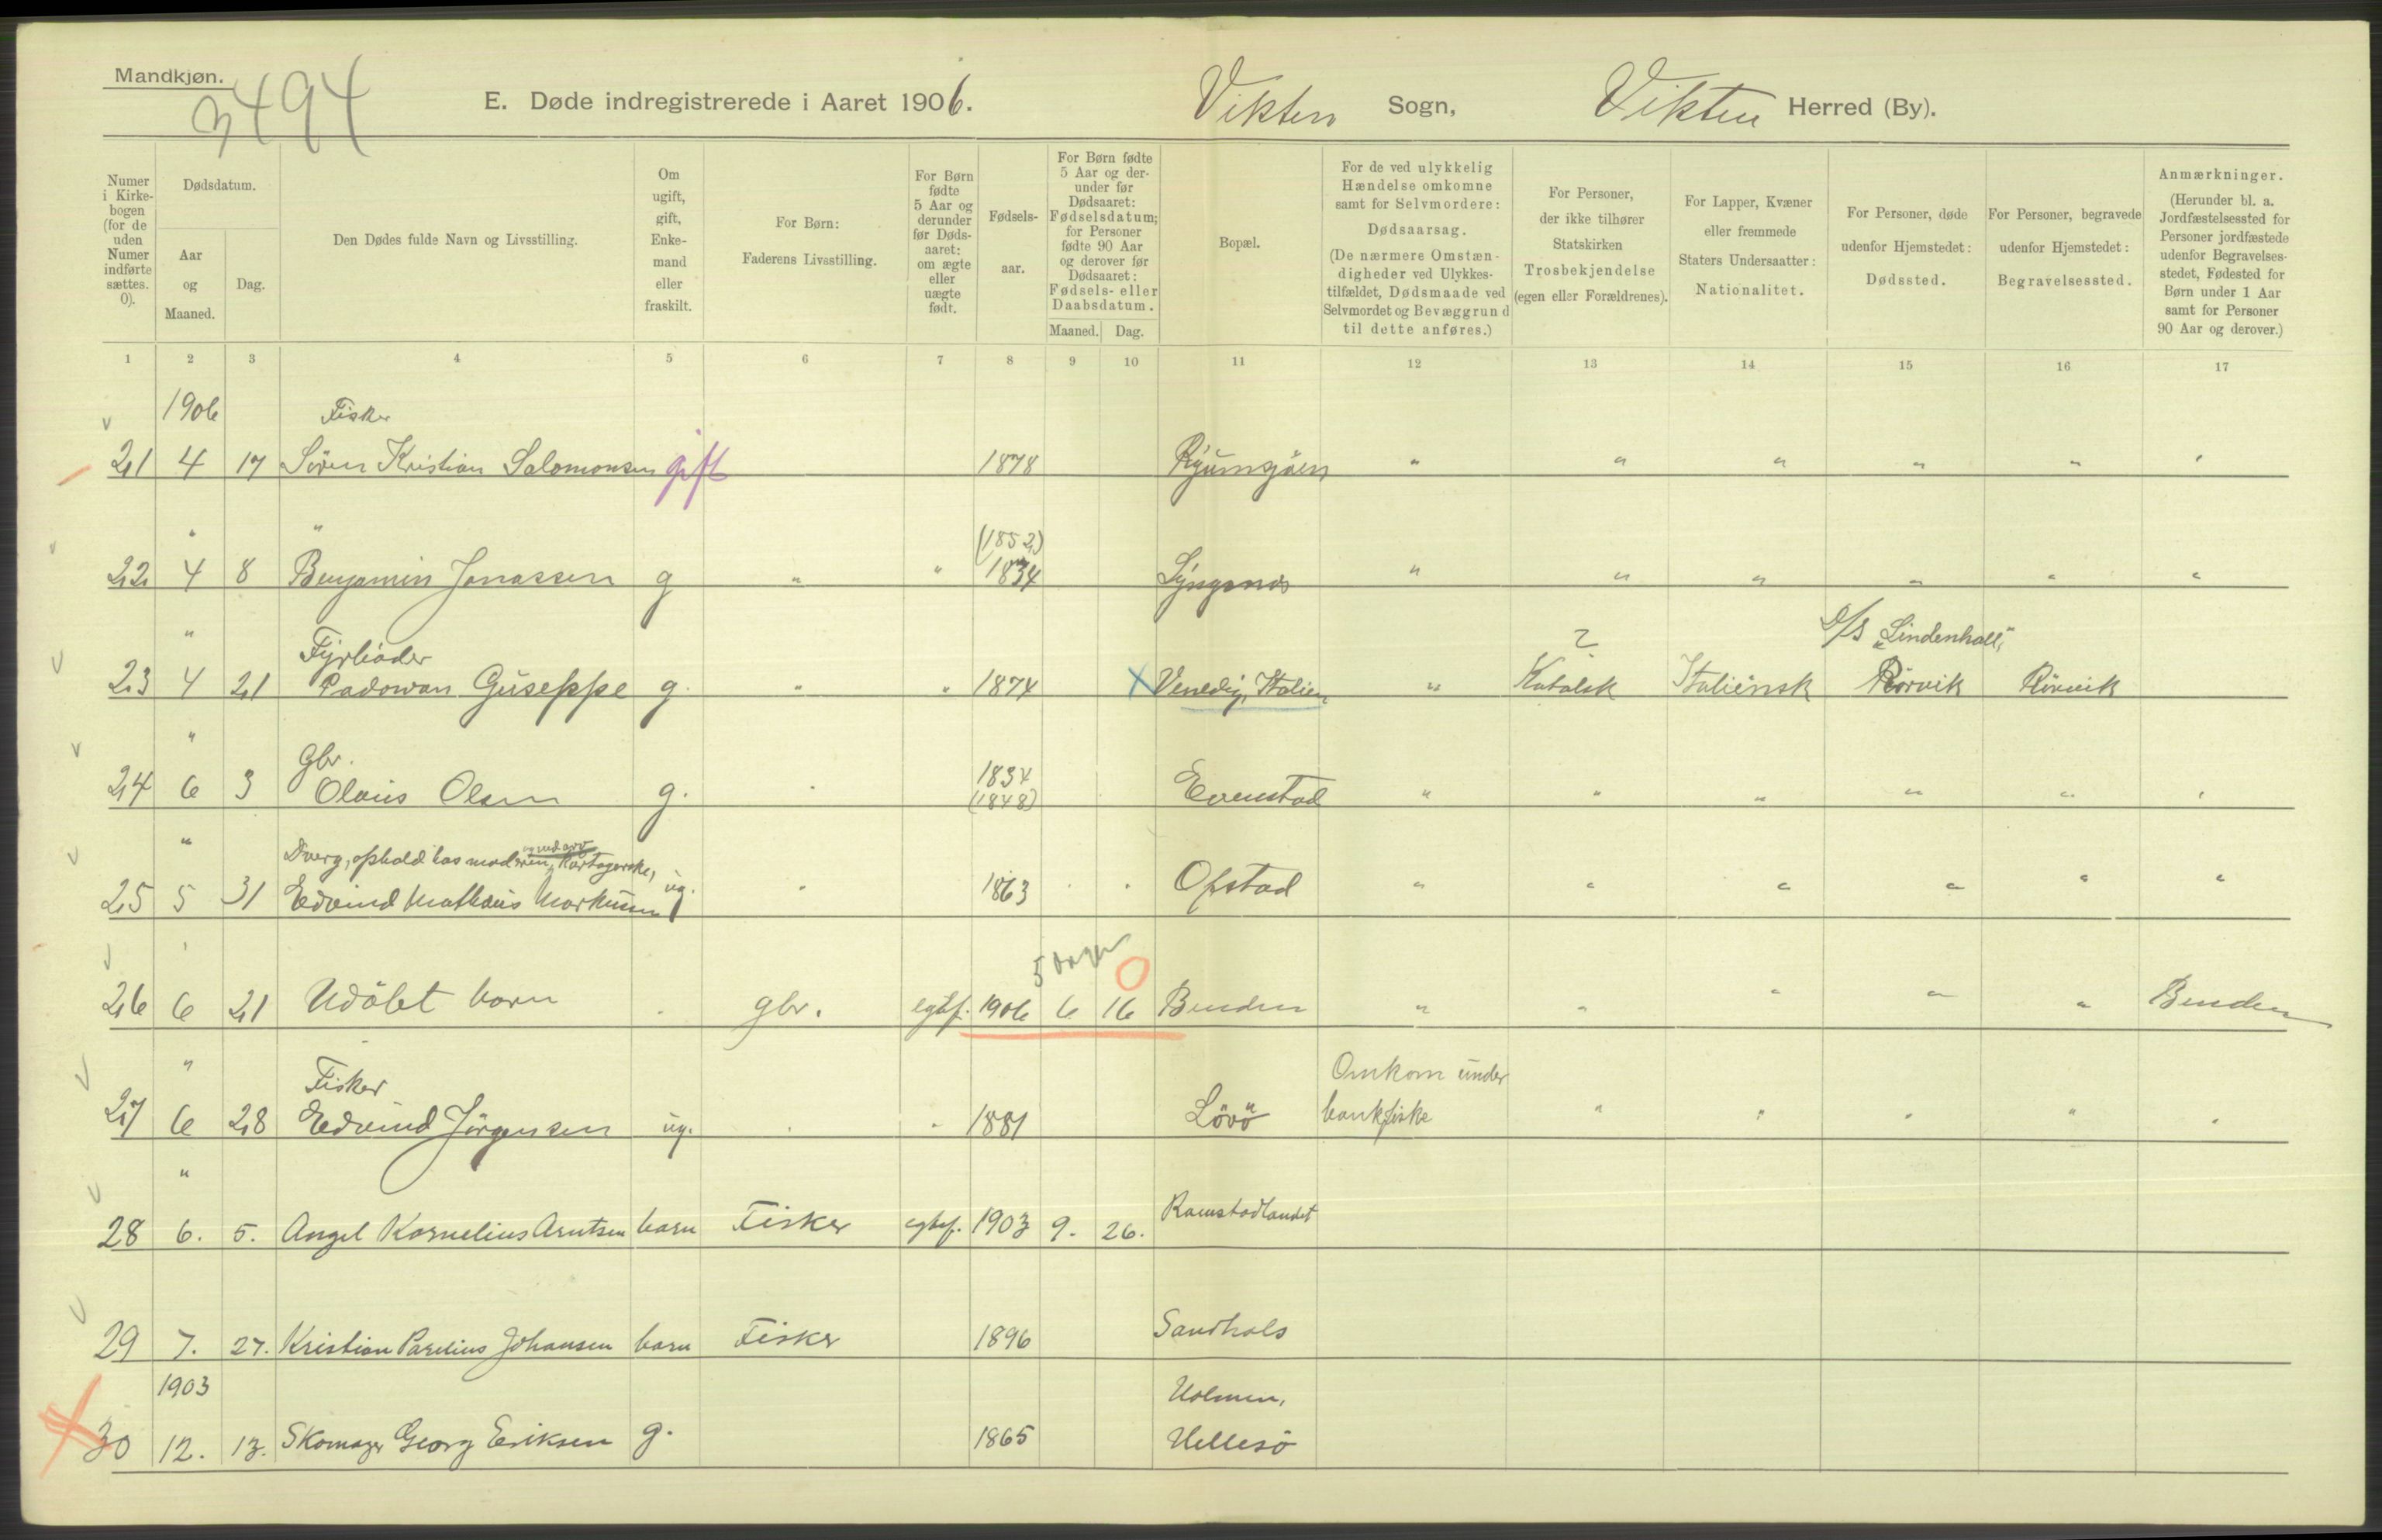 Mandkjøn.
3494
E. Døde indregistrerede i Aaret 1906. Vikten Sogn, Vikten Herred (By).
Numer i Kirkebogen (for de uden Numer indførte sættes. 0).
Dødsdatum.
Aar og Maaned.
Dag.
Den Dødes fulde Navn og Livsstilling.
Om ugift, gift, Enkemand eller fraskilt.
For Børn: Faderens Livsstilling.
For Børn fødte 5 Aar og derunder før Dødsaaret: om ægte eller uægte født.
Fødselsaar.
For Børn fødte 5 Aar og derunder før Dødsaaret: Fødselsdatum; for Personer fødte 90 Aar og derover før Dødsaaret: Fødsels- eller Daabsdatum.
Maaned. Dag.
Bopæl.
For de ved ulykkelig Hændelse omkomne samt for Selvmordere: Dødsaarsag. (De nærmere Omstændigheder ved Ulykkestilfældet, Dødsmaade ved Selvmordet og Bevæggrund til dette anføres.)
For Personer, der ikke tilhører Statskirken Trosbekjendelse (egen eller Forældrenes).
For Lapper, Kvæner eller fremmede Staters Undersaatter: Nationalitet.
For Personer, døde udenfor Hjemstedet: Dødssted.
For Personer, begravede udenfor Hjemstedet: Begravelsessted.
Anmærkninger. (Herunder bl. a. Jordfæstelsessted for Personer jordfæstede udenfor Begravelsesstedet, Fødested for Børn under 1 Aar samt for Personer 90 Aar og derover.)
1 2 3 4 5 6 7 8 9 10 11 12 13 14 15 16 17
1906 Fisker
21 4 17 Sören Kristian Salomonsen gift 1878 " " " " " "
" " (1852)
22 4 8 Benjamin Jonassen g " " 1834 Lyngsnes " " " " " "
" Fyrböder ? D/S "Lindenhall",
23 4 21 Padowan Guseppe g. " " 1874 Venedig, Italien " Katolsk Italiensk Rörvik Rörvik
" Gbr. 1834
24 6 3 Olaus Olsen g. " (1848) Evenstad " " " " " "
" Dverg, ophold hos moderen,
25 5 31 Edvind Mathæus Markussen ug. " 1863 " " Ofstad " " " " " "
" 5 dager 0
26 6 21 Udöbt barn " gbr. egtef. 1906 6 16 Benden " " " " " Benden
" Fisker Omkom under
27 6 28 Edvind Jörgensen ug. " " 1881 Lövö bankfiske " " " " "
"
28 6. 5. Angel Kornelius Arntsen barn Fisker egtef. 1903 9. 26. Ramstadlandet
29 7. 27. Kristian Parelius Johansen barn Fisker 1896 Sandhals
1903 Holmen,
30 12. 13. Skomager Georg Eriksen g. 1865 Hellesö